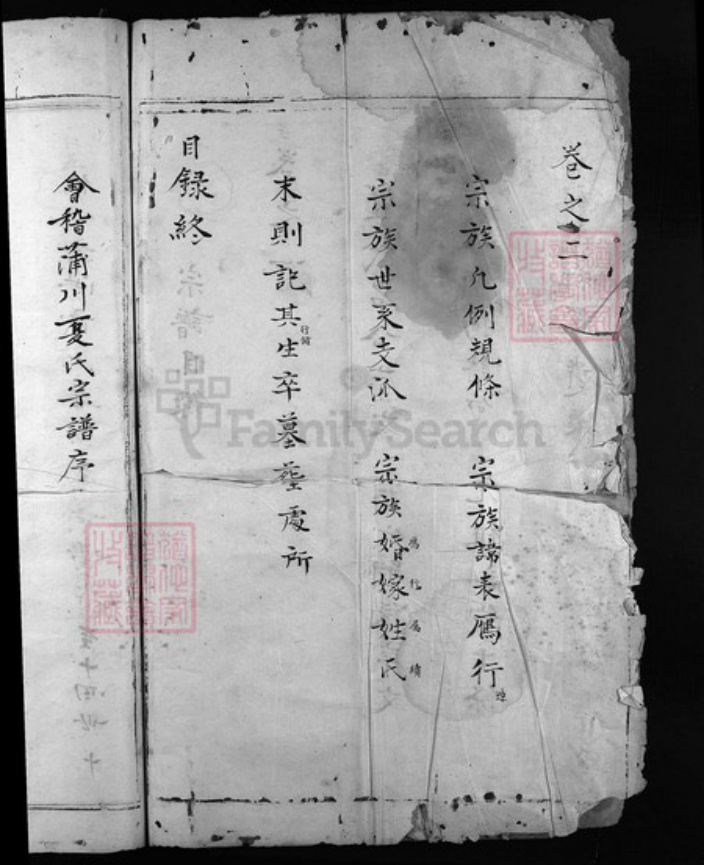 卷之二
宗族凡例規條 宗族諱表鴈行
宗族世系支派 宗族婚嫁姓氏
末則記其生卒墓塋處所
行
目錄終
會稽蒲川夏氏宗譜序
FamilySearch